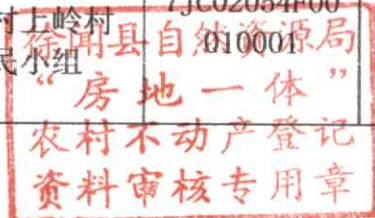 村上岭村
民小组
7JC02054F00
010001
徐闻县自然资源局
“房地一体”
农村不动产登记
资料审核专用章